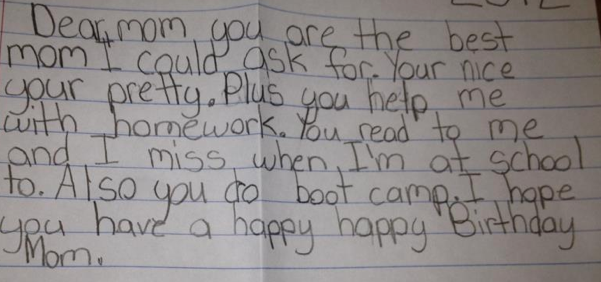 Dear, mom you are the best
mom I could ask for. Your nice
your pretty. Plus you help me
with homework. You read to me
and I miss when I'm at school
to. Also you do boot camp. I hope
you have a happy happy Birthday
Mom.